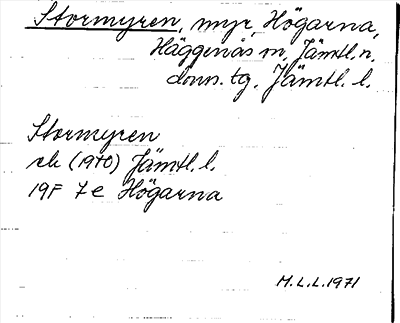 Stormyren, myr, Högarna,
Häggenås sn, Jämtl. n.
doms. tg. Jämtl. l.
Stormyren
ek (1970) Jämtl. l.
19F 7e Högarna
M.L.L. 1971